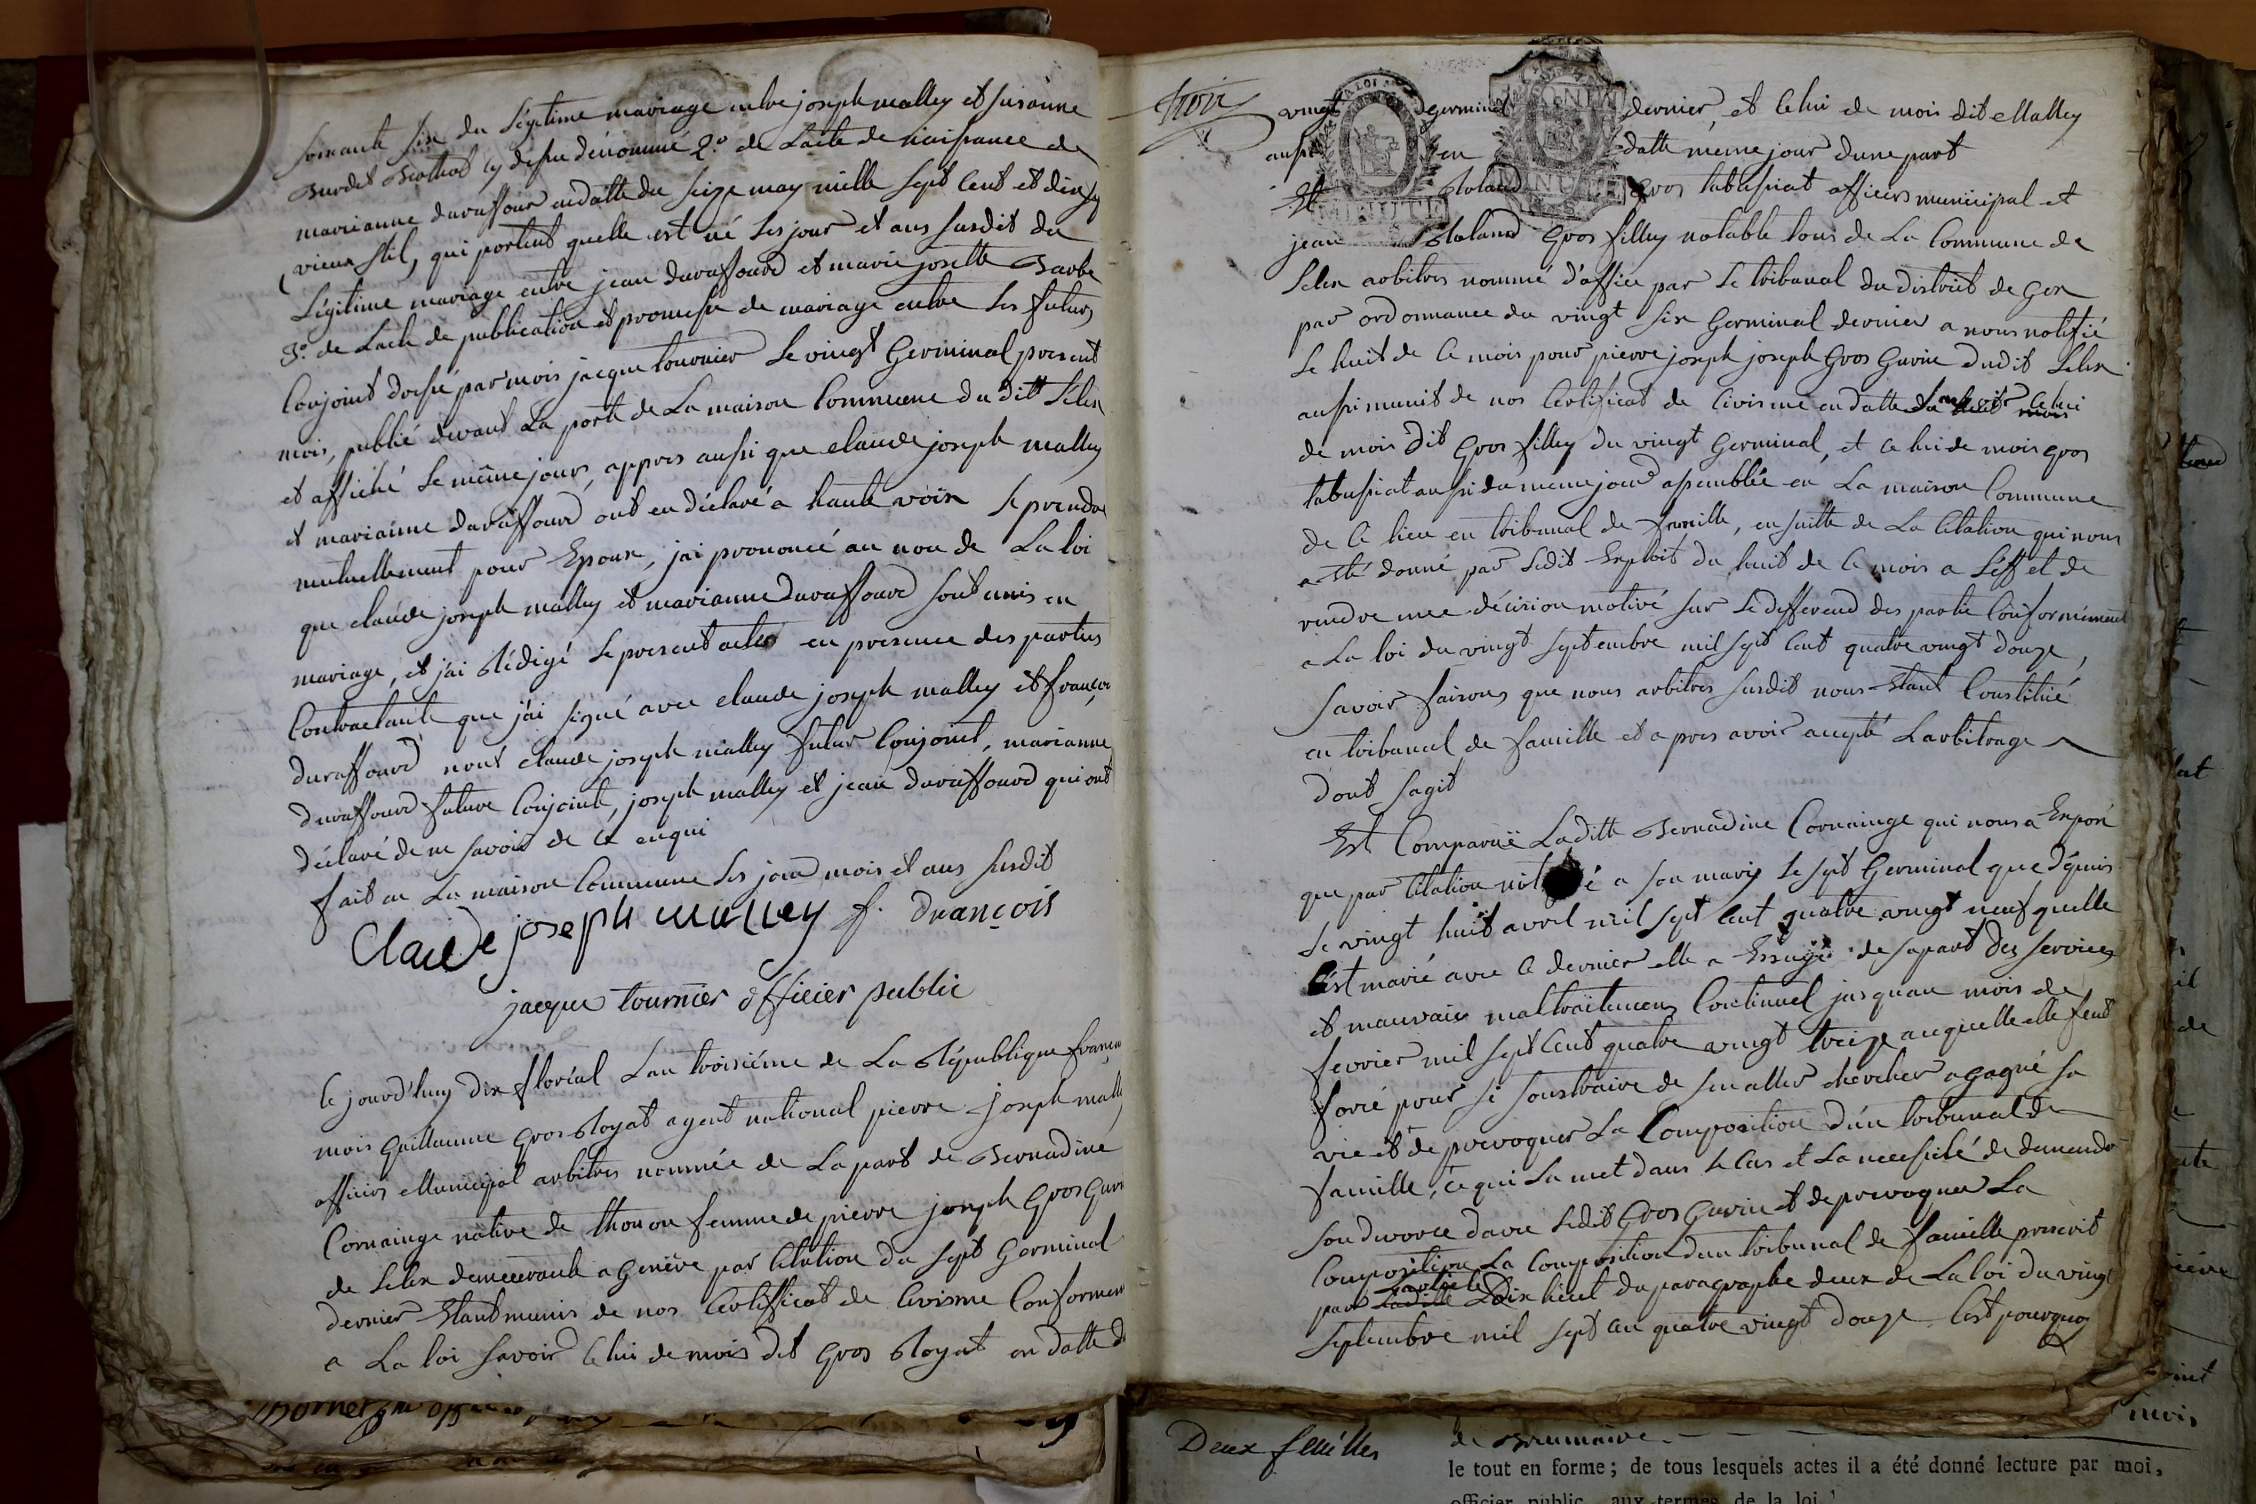 soixante six du légitime mariage entre joseph malley et susanne
Burdet Brothod cy dessu dénommé 2.º de Lacte de naissance de
marianne duraffour en datte du seize may mille sept cent et dix sep
(vieux stil, qui portent quelle est né les jour et ans susdit du
Légitime mariage entre jean duraffourd et marie josette Barbe
3.º de Lacte de publication et promesse de mariage entre les futurs
Conjoint dressé par mois jacque tournier le vingt Germinal present
mois, publié devant La porte de La maison Commune du ditt Lelex
et affiché le même jour, appres aussi que claude joseph malley
et marianne duraffourd ont eu déclaré a haute voix se prendre
mutuellement pour Epoux, jai prononcé au non de La loi
que claude joseph malley et marianne duraffourd sont unis en
mariage, et j'ai Rédigé le present acte en presence des parties
Contractante que j'ai signé avec claude joseph malley et françoi
duraffourd nont claude joseph malley futur Conjoint, marianne
duraffourd future Conjointe, joseph malley et jean duraffourd qui ont
déclaré de ne savoir de ce enqui
fait en La maison Commune les jour mois et ans susdit
Claude joseph malley f. Drançois
jacque tournier officier public
Ce jourd'huy dix floréal Lan troisiéme de La République françai
mois Guillaume Gros Royat agent national pierre joseph malle
officier Municipal arbitres nommée de La part de Bernadine
Cornainge native de thonon femme de pierre joseph Gros Guri
de Lelex demeurante a Genève par Citation du sept Germinal
dernier Etant munis de nos Certifficat de Civisme Conformem
a La loi savoir Celui de mois dit Gros Royat en datte d
trois
vingt germinal dernier, et Celui de mois dit Malley
aussi en datte meme jour dune part
Et Roland Gros tabusiat officiers municipal et
jean Roland Gros filley notable tous de La Commune de
Lelex arbitres nommé d'affice par Le tribunal du district de Gex
par ordonnance du vingt six Germinal dernier a nous notifié
Le huit de Ce mois pour pierre joseph joseph Gros Gurin dudit Lelex
aussi munit de nos Certificat de Civisme en datte savoir Celui
de mois dit Gros filley du vingt Germinal, et Celui de mois gros
tabusiat aussi du meme jour assemblée en La maison Commune
de Ce lieu en tribunal de famille, en suitte de La Citation qui nous
a Eté donné par Ledit Exploit du huit de Ce mois a L'éffet de
rendre une décision motivé sur Le differend des partie Conformément
a La loi du vingt septembre mil sept Cent quatre vingt douze,
savoir faisons que nous arbitres susdit nous Etant Constitué
en tribunal de famille et apres avoir accepté Larbitrage
dont sagit
Est Comparuë Laditte Bernadine Cornainge qui nous a Exposé
que par Citation notifié a son mary le sept Germinal que dépuis
Le vingt huit avril mil sept Cent quatre vingt neuf quelle
C'est marié avec Ce dernier elle a Essuyé de sapart des services
et mauvais maltraitemens Continuel jusquau mois de
fevrier mil sept Cent quatre vingt treize auquelle elle feut
forcé pour si soustraire de sen aller chercher a gagné sa
vie et de provoquer La Composition dun tribunal de
famille, ce qui La met dans le Cas et La necessité de demander
son divorce davec Ledit Gros Gurin et de provoquer La
Composition La Composition dun tribunal de famille prescrit
par Larticle Dix huit du paragraphe deux de La loi du vingt
septembre mil sept Cen quatre vingt douze Cest pourquoy
Deux feuilles
de Brumaire
le tout en forme; de tous lesquels actes il a été donné lecture par moi,
officier public, aux termes de la loi